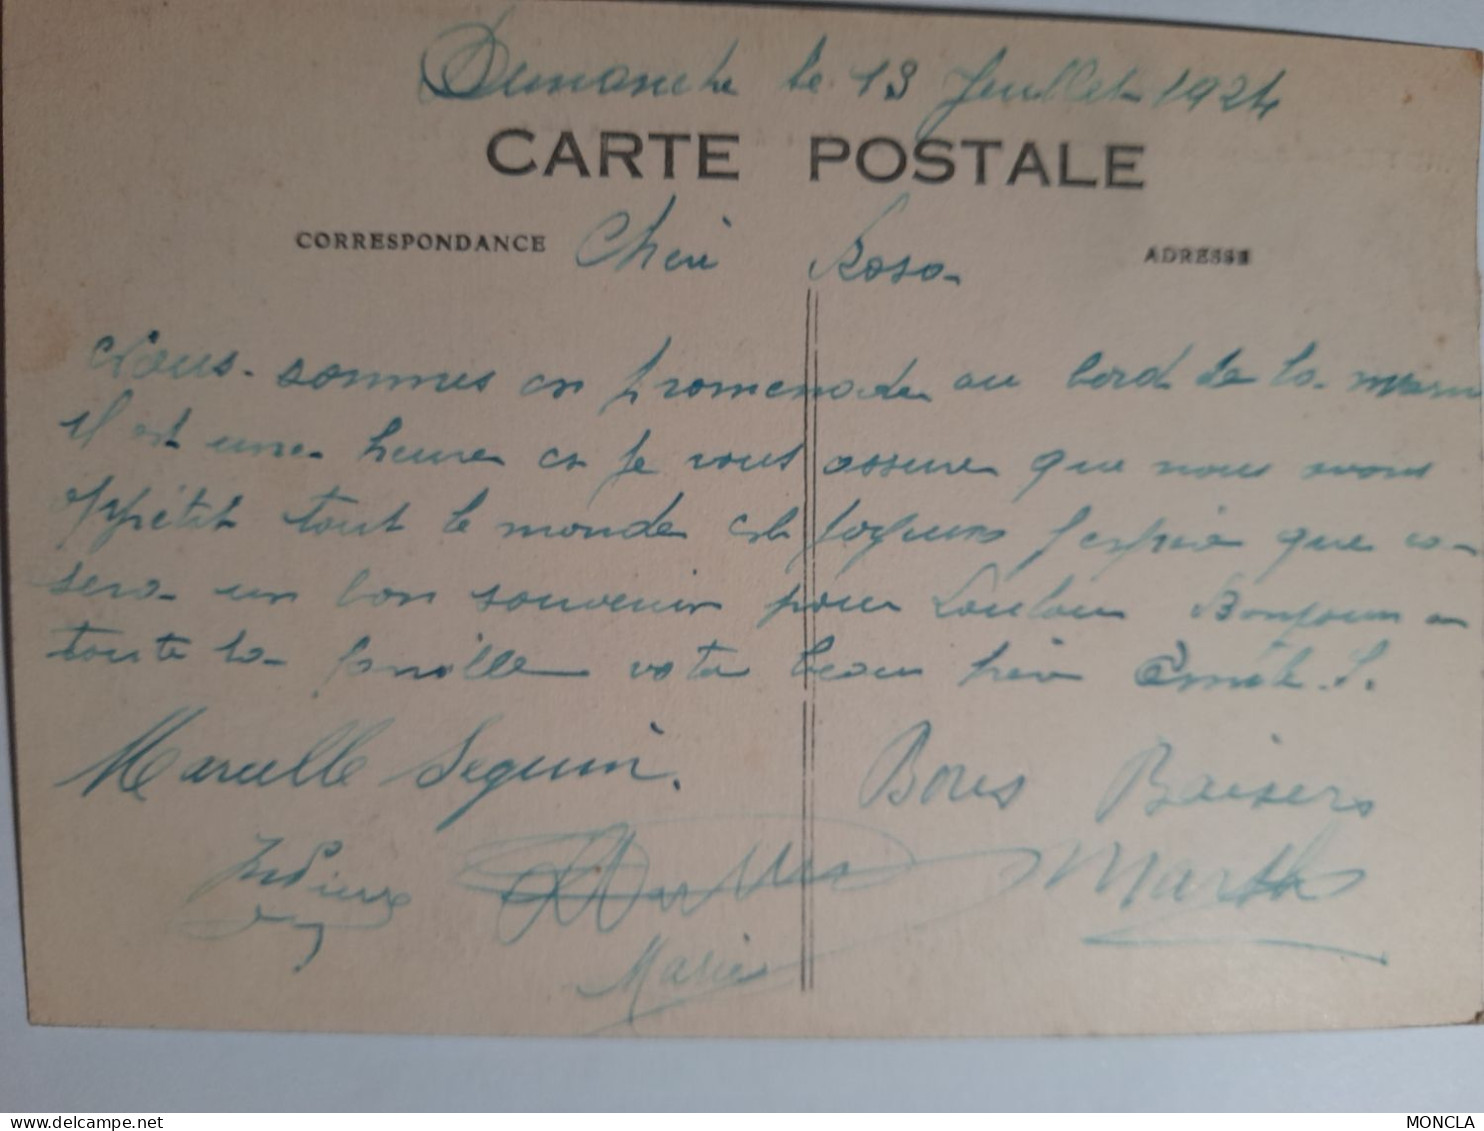 Dimanche le 13 Juillet 1924
CARTE POSTALE
CORRESPONDANCE
Cheri Rosa
ADRESSE
Nous sommes en promenade au bord de la marn
il est une heure et je vous assure que nous avons
appétit tout le monde est joyeux j'espère que ca
sera un bon souvenir pour Loulou Bonjour a
toute la famille votre beau frère Emile. S.
Marcelle Seguin.
Bons Baisers
Marthe
Marie
MONCLA